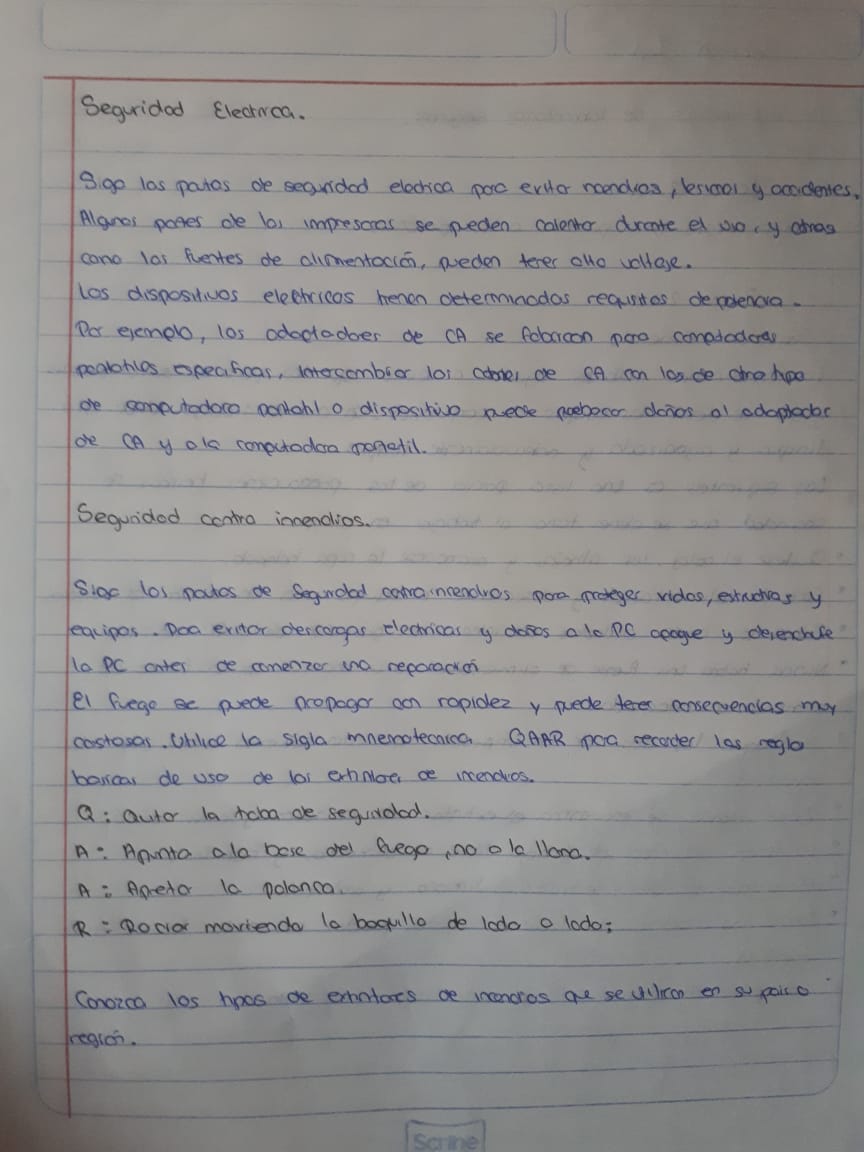 Seguridad Electrica.
Siga las pautas de seguridad electrica para evitar incendios, lesiones y accidentes.
Algunas partes de las impresoras se pueden calentar durante el uso, y otras
como las fuentes de alimentación, pueden tener alto voltaje.
Los dispositivos electricos tienen determinados requisitos de potencia.
Por ejemplo, los adaptadores de CA se fabrican para computadoras
portatiles especificas, intercambiar los cables de CA con los de otro tipo
de computadora portatil o dispositivo puede daños al adaptador
de CA y a la computadora portatil.
Seguridad contra innendios.
Siga las pautas de Seguridad contra incendios para proteger vidas, estructuras y
equipos. Para evitar descargas electricas y daños a la PC apague y desenchufe
la PC antes de comenzar una reparación
El fuego se puede propagar con rapidez y puede tener consecuencias muy
costosas. Utilice la sigla mnemotecnica QAAR para recordar las regla
basicas de uso de los extintores de incendios.
Q: Quitar la traba de seguridad.
A: Apunta a la base del fuego, no a la llama.
A: Apretar la palanca.
R: Rociar moviendo la boquilla de lado a lado;
Conozca los tipos de extintores de incendios que se utilizan en su pais o
región.
Scribe